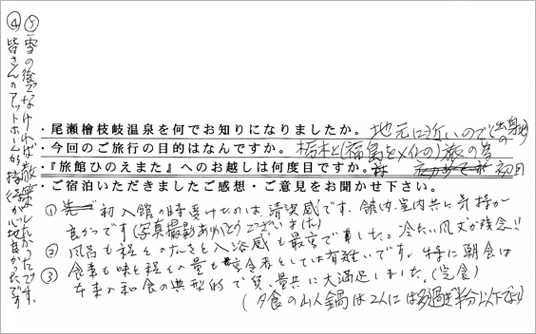 ・尾瀬檜枝岐温泉を何でお知りになりましたか。 地元に近いので(出身地)
・今回のご旅行の目的はなんですか。 栃木と(福島をメインの)旅の為
・『旅館ひのえまた』へのお越しは何度目ですか。 初回
・ご宿泊いただきましたご感想・ご意見をお聞かせ下さい。
① 初入館の時受けたのは、清潔感です、館内、室内共に気持が
良かったです(写真撮影ありがとうございました)
② 風呂も程よの大きさと入浴感も最高でした。冷たい風丈が残念!!
③ 食事も味と程よの量も 食者としては有難いです。特に朝食は
本来の和食の典型的で質、量共に大満足しました。(完食)
(夕食の山人鍋は2人には多過ぎ半分以下でよい)
④ 皆さんのアットホーム的接 が 良かったです
⑤ 雪の後でなければ散策したかったです。